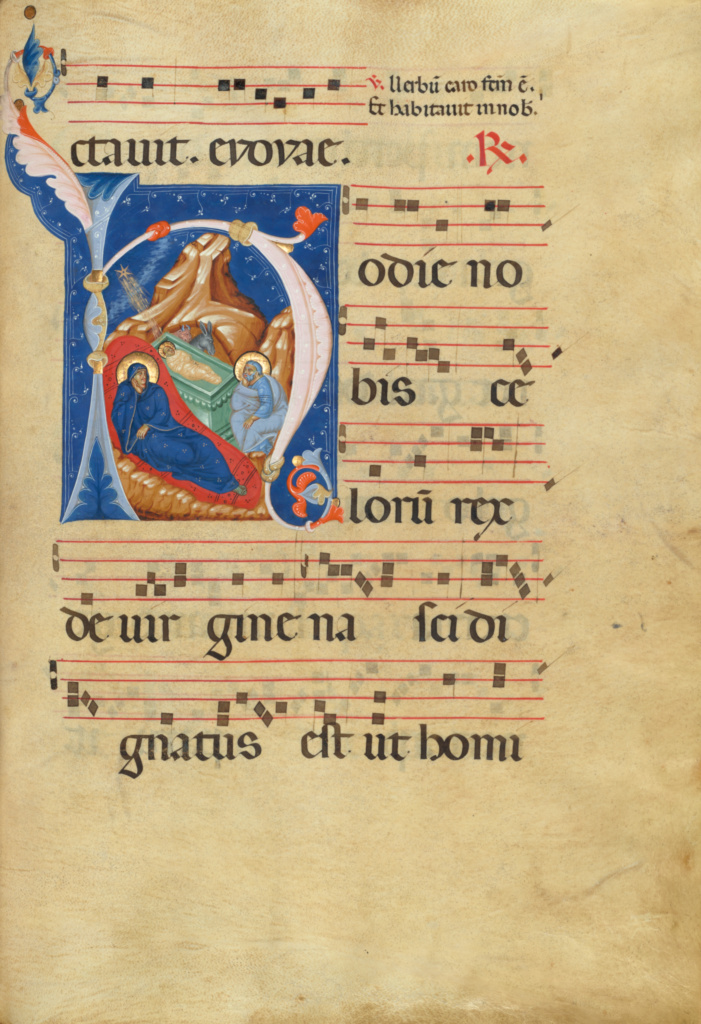 ℣. Uerbū caro fctm̄ ē.
Et habitauit in nob̄.
ctauit. evovae. .℞.
Hodie no
bis ce
lorū rex
de uir gine na sci di
gnatus est ut homi